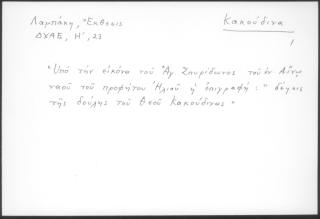 Λαμπάκη, Ἔκθεσις
Κακούδινα
ΔΧΑΕ, Η', 23
1
"Ὑπὸ τὴν εἰκόνα τοῦ Ἁγ. Σπυρίδωνος τοῦ ἐν
ναοῦ τοῦ προφήτου Ἠλιοῦ ἡ ἐπιγραφή: " δέησις
τῆς δούλης τοῦ Θεοῦ Κακούδινας "